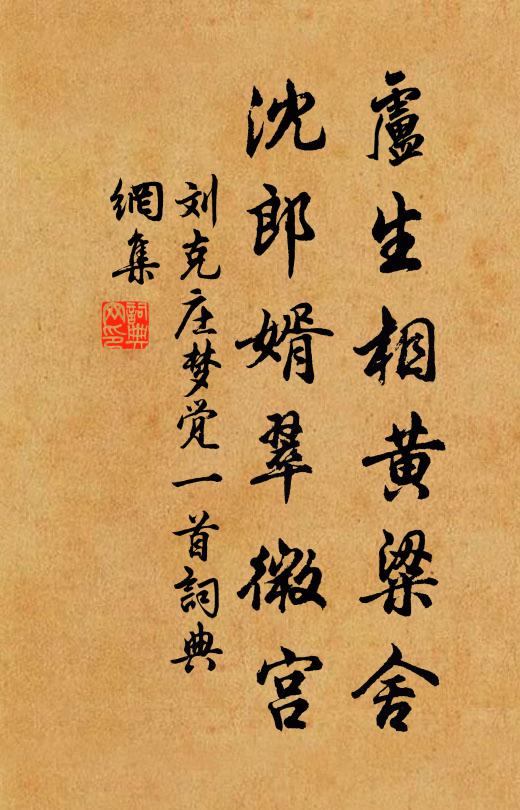 盧生相黄梁舍
沈郎婿翠微宫
刘克庄梦觉一首詞典
網集
詞典
网印